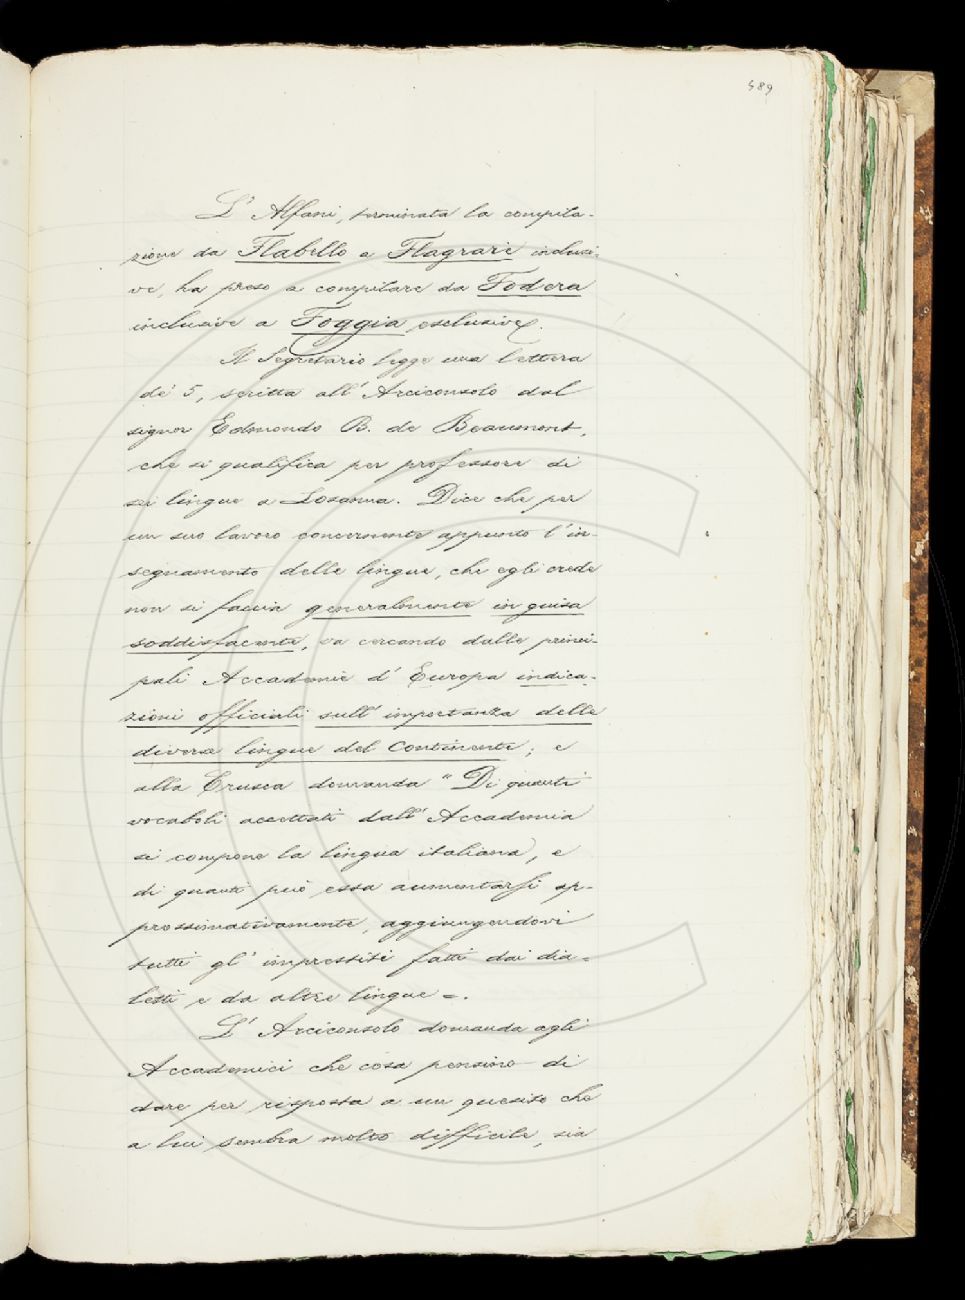 589
L' Alfani, terminata la compila-
zione da Flabello a Flagrare inclusi-
ve, ha preso a compilare da Fodera
inclusive a Foggia esclusive.
Il Segretario legge una lettera
de' 5, scritta all' Arciconsolo dal
signor Edmondo B. de Beaumont,
che si qualifica per professore di
sei lingue a Losanna. Dice che per
un suo lavoro concernente appunto l'in-
segnamento delle lingue, che egli crede
non si faccia generalmente in guisa
soddisfacente, va cercando dalle princi-
pali Accademie d' Europa indica-
zioni officiali sull' importanza delle
diverse lingue del Continente; e
alla Crusca domanda "Di quanti
vocaboli accettati dall' Accademia
si compone la lingua italiana, e
di quanti può essa aumentarsi ap-
prossimativamente, aggiungendovi
tutti gl' imprestiti fatti dai dia=
letti e da altre lingue =.
L' Arciconsolo domanda agli
Accademici che cosa pensino di
dare per risposta a un quesito che
a lui sembra molto difficile, sia